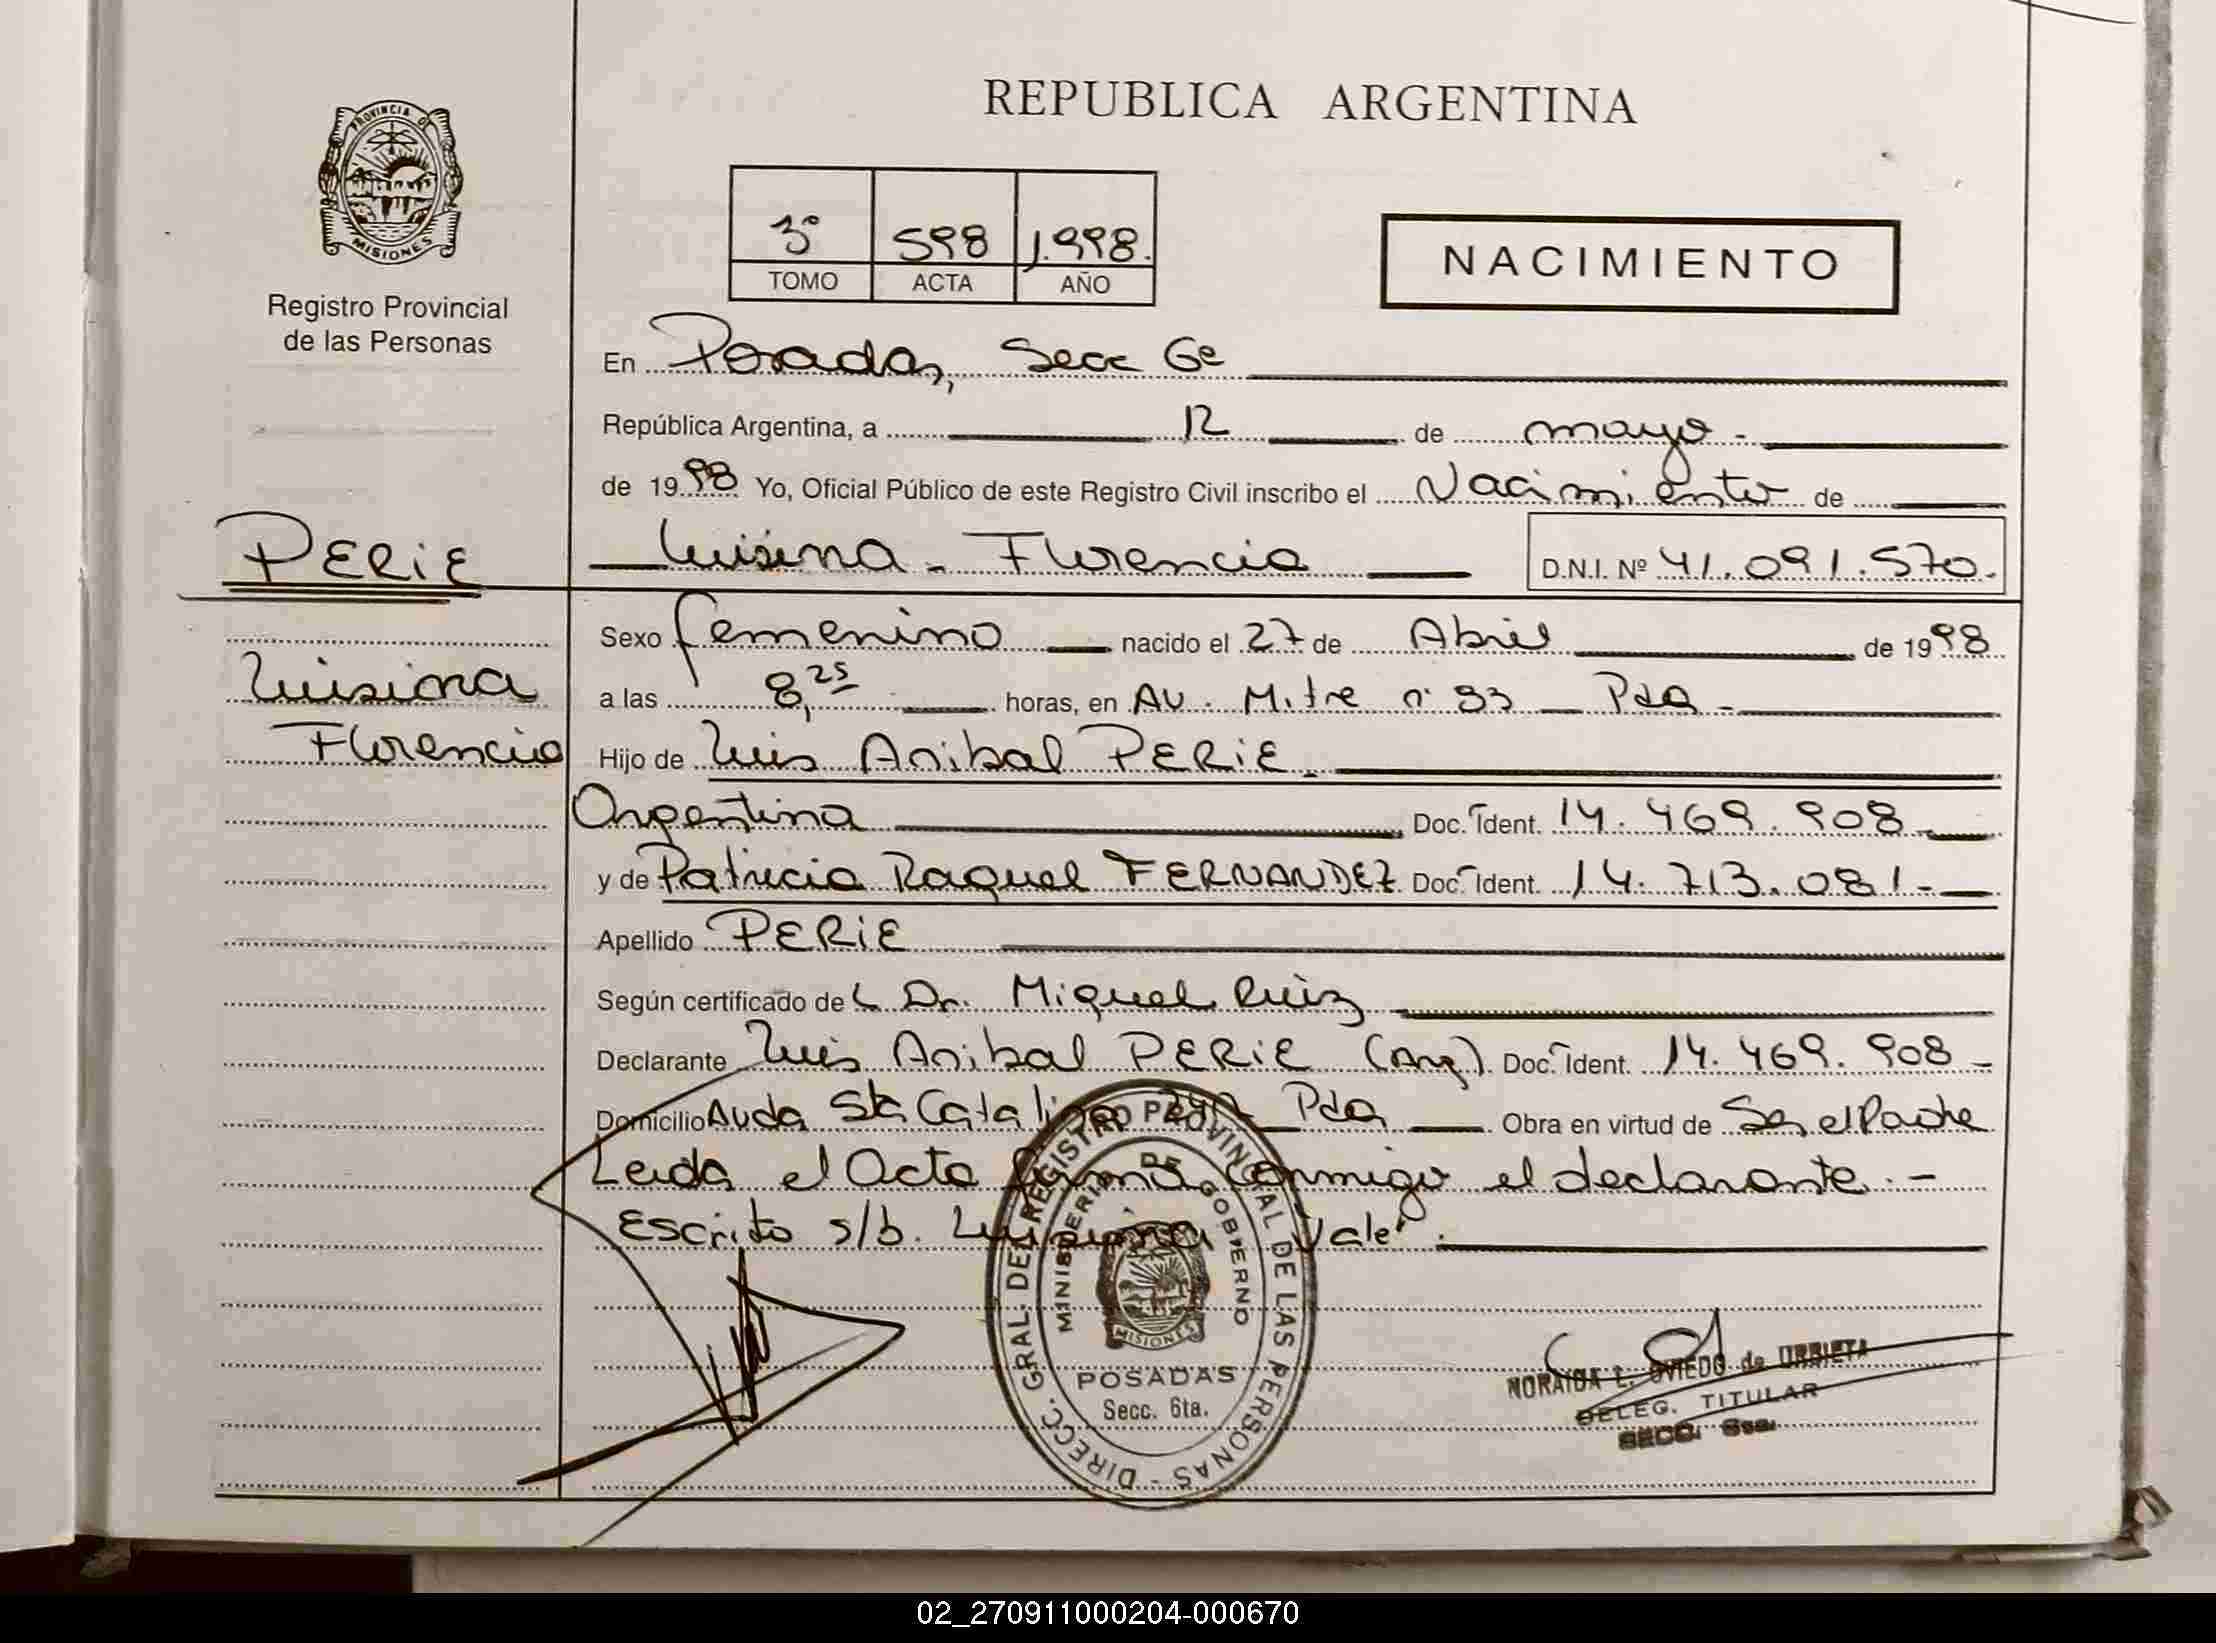 REPUBLICA ARGENTINA
PROVINCIA DE
MISIONES
Registro Provincial
de las Personas
3º 598 1.998.
TOMO ACTA AÑO
NACIMIENTO
En Posadas, Secc 6º
República Argentina, a 12 de mayo -
de 1998 Yo, Oficial Público de este Registro Civil inscribo el Nacimiento de
PERIE
Luisina - Florencia D.N.I. Nº 41.091.570.-
Sexo femenino nacido el 27 de Abril de 1998
Luisina
Florencia
a las 8,25 horas, en Av. Mitre nº 93 Pda -
Hijo de Luis Anibal PERIE -
Argentina Doc. Ident. 14.469.908 -
y de Patricia Raquel FERNANDEZ Doc. Ident. 14.713.081 -
Apellido PERIE
Según certificado de L Dr. Miguel Ruiz
Declarante Luis Anibal PERIE (Arg). Doc. Ident. 14.469.908 -
Domicilio Avda Sta Catalina Pda Obra en virtud de Ser el Padre
Leida el Acta firma conmigo el declarante. -
Escrito s/b. Luisina Vale.
DIRECC. GRAL. DEL REGISTRO PROVINCIAL DE LAS PERSONAS -
MINISTERIO DE GOBIERNO
MISIONES
POSADAS
Secc. 6ta.
NORAIDA L. OVIEDO de URRIETA
DELEG. TITULAR
SECC. 6ta.
02_270911000204-000670